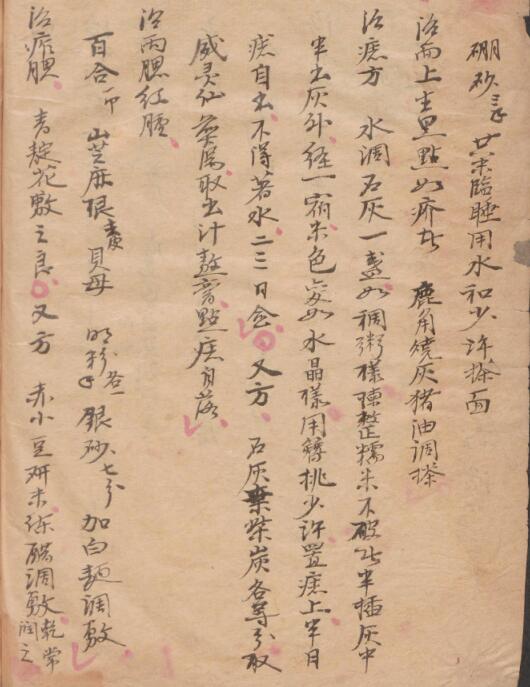 硼砂三錢 共末臨睡用水和少許搽面
治面上生黑點如疥者 鹿角燒灰猪油調搽
治痣方 水調石灰一盞如稠粥樣揀整糯米不破者半插灰中
半出灰外經一宿米色變如水晶樣用簪挑少許置痣上半日
痣自出不得著水二三日愈 又方 石灰桑柴炭各等分取
威灵仙濃取出汁熬膏點痣自落
治兩腮紅腫
百合一兩 山芝麻根 貝母 明粉各一錢 銀砂七分 加白麵調敷
治痄腮 青靛花敷之良 又方 赤小豆研末絲醋調敷乾常潤之